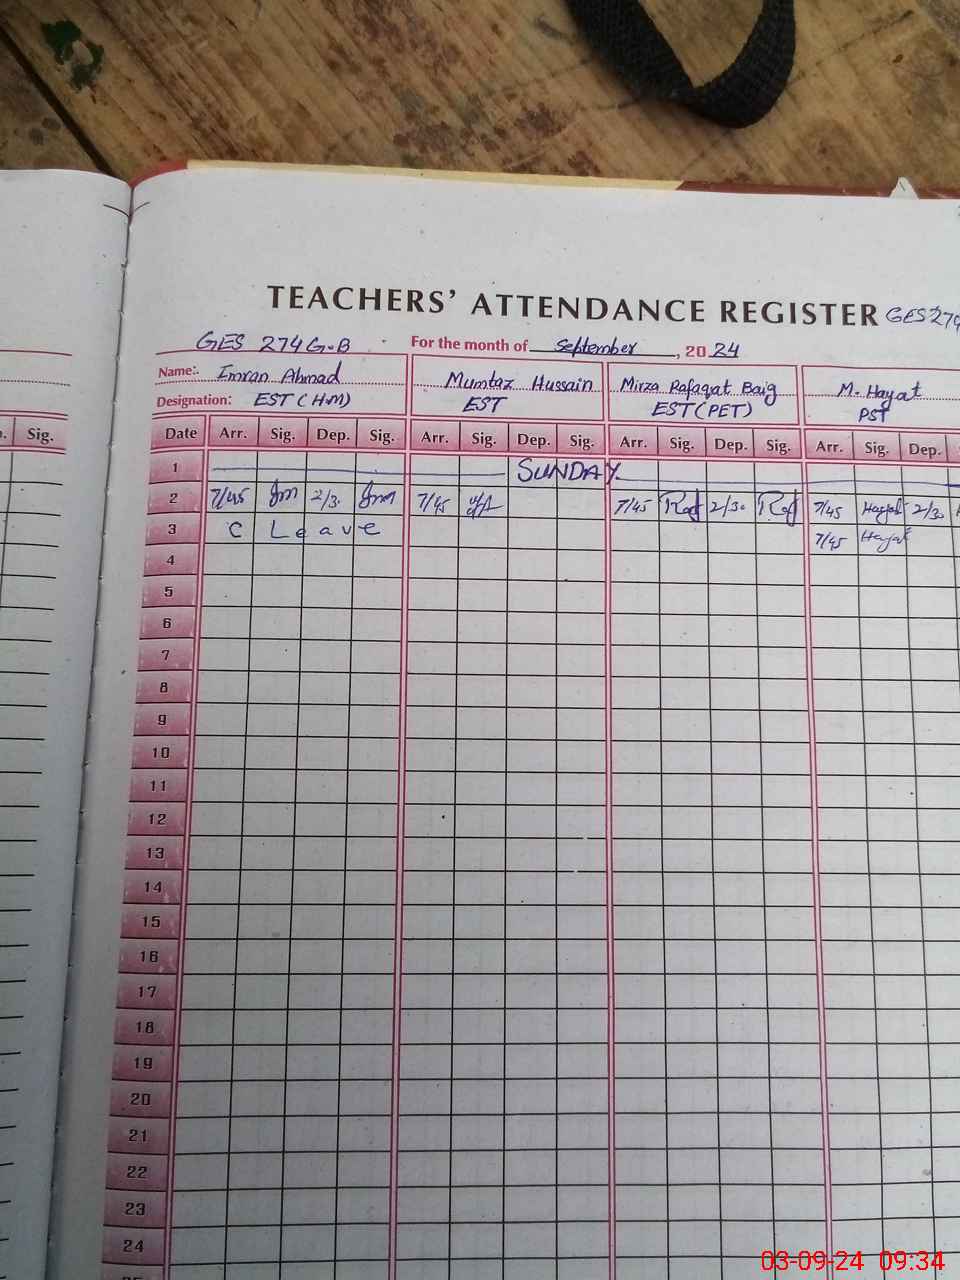 TEACHERS' ATTENDANCE REGISTER GES 274
GES 274 G-B For the month of September, 2024
Name: Imran Ahmad Mumtaz Hussain Mirza Rafaqat Baig M. Hayat
Designation: EST (H.M) EST EST (PET) PST
Sig. Date Arr. Sig. Dep. Sig. Arr. Sig. Dep. Sig. Arr. Sig. Dep. Sig. Arr. Sig. Dep.
1 SUNDAY
2 7/45 2/30 7/45 7/45 Raf 2/30 Raf 7/45 Hayat 2/30
3 C Leave 7/45 Hayat
4
5
6
7
8
9
10
11
12
13
14
15
16
17
18
19
20
21
22
23
24
03-09-24 09:34